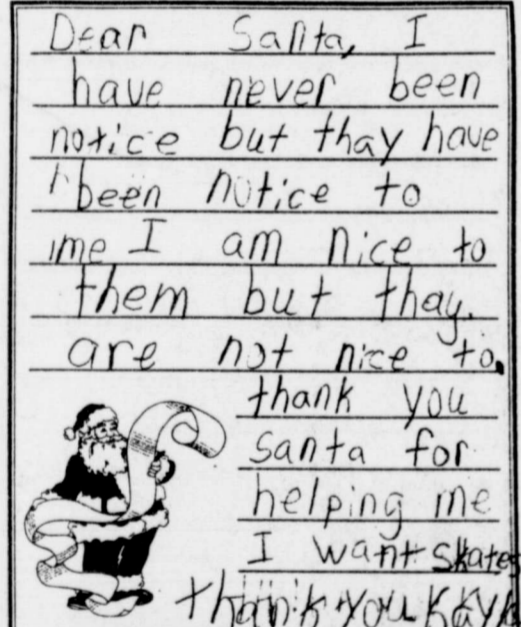 Dear Santa, I
have never been
notice but thay have
been notice to
me I am nice to
them but thay.
are not nice to.
thank you
santa for
helping me
I want skates
thank you kayla